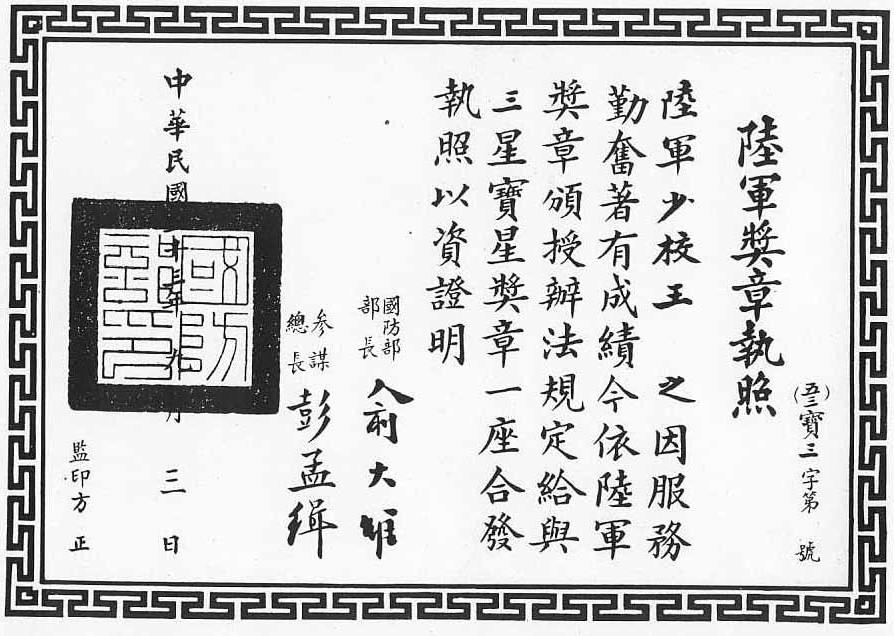 陸軍獎章執照
(五三)寶三字第 號
陸軍少校王 之因服務
勤奮著有成績今依陸軍
獎章頒授辦法規定給與
三星寶星獎章一座合發
執照以資證明
國防部
部長 俞大維
參謀
總長 彭孟緝
中華民國 十三年九月三日
監印方 正